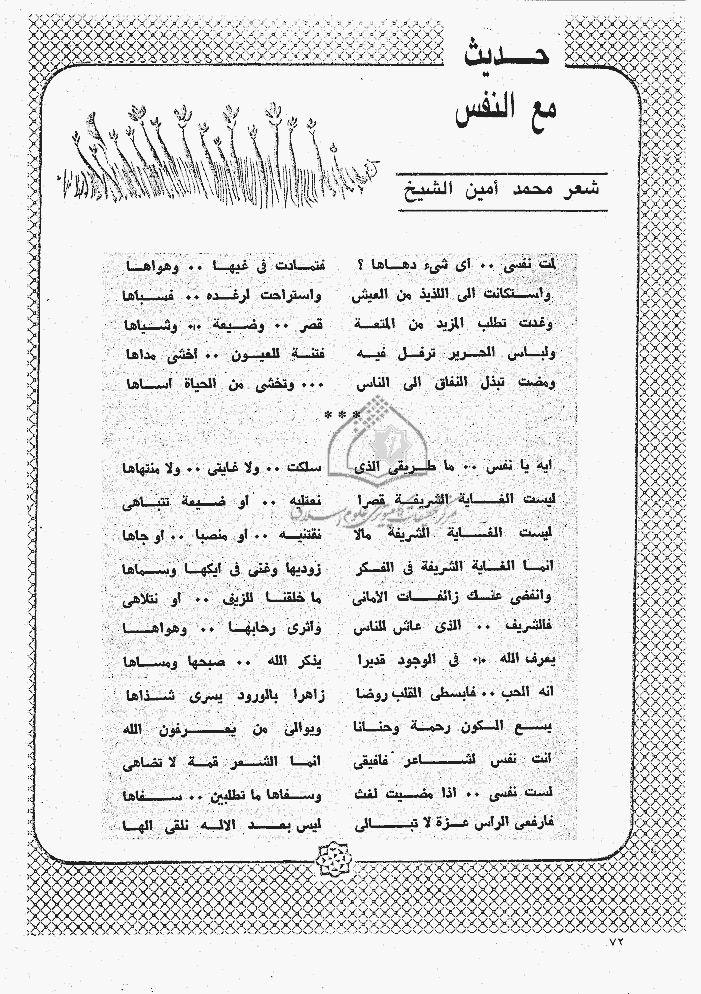 حديث
مع النفس
شعر محمد أمين الشيخ
لمت نفسى .. أى شىء دهاها ؟ فتمادت فى غيها .. وهواها
واستكانت الى اللذيذ من العيش واستراحت لرغده .. فسباها
وغدت تطلب المزيد من المتعة قصر .. وضيعة .. وشياها
ولباس الحرير ترفل فيه فتنة للعيون .. أخشى مداها
ومضت تبذل النفاق الى الناس ... وتخشى من الحياة أساها
***
ايه يا نفس .. ما طريقى الذى سلكت .. ولا غايتى .. ولا منتهاها
ليست الغاية الشريفة قصرا نعتليه .. أو ضيعة تتباهى
ليست الغاية الشريفة مالا نقتنيه .. أو منصبا .. أو جاها
انما الغاية الشريفة فى الفكر زوديها وغنى فى أيكها وسماها
وانفضى عنك زائفات الأمانى ما خلقنا للزيف .. أو نتلاهى
فالشريف .. الذى عاش للناس وأثرى رحابها .. وهواها
يعرف الله .. فى الوجود قديرا يذكر الله .. صبحها ومساها
انه الحب .. فابسطى القلب روضا زاهرا بالورود يسرى شذاها
يسع الكون رحمة وحنانا ويوالى من يعرفون الله
أنت نفس لشاعر فأفيقى انما الشعر قمة لا تضاهى
لست نفسى .. اذا مضيت لغث وسفاها ما تطلبين .. سفاها
فارفعى الرأس عزة لا تبالى ليس بعد الاله نلقى الها
٧٢